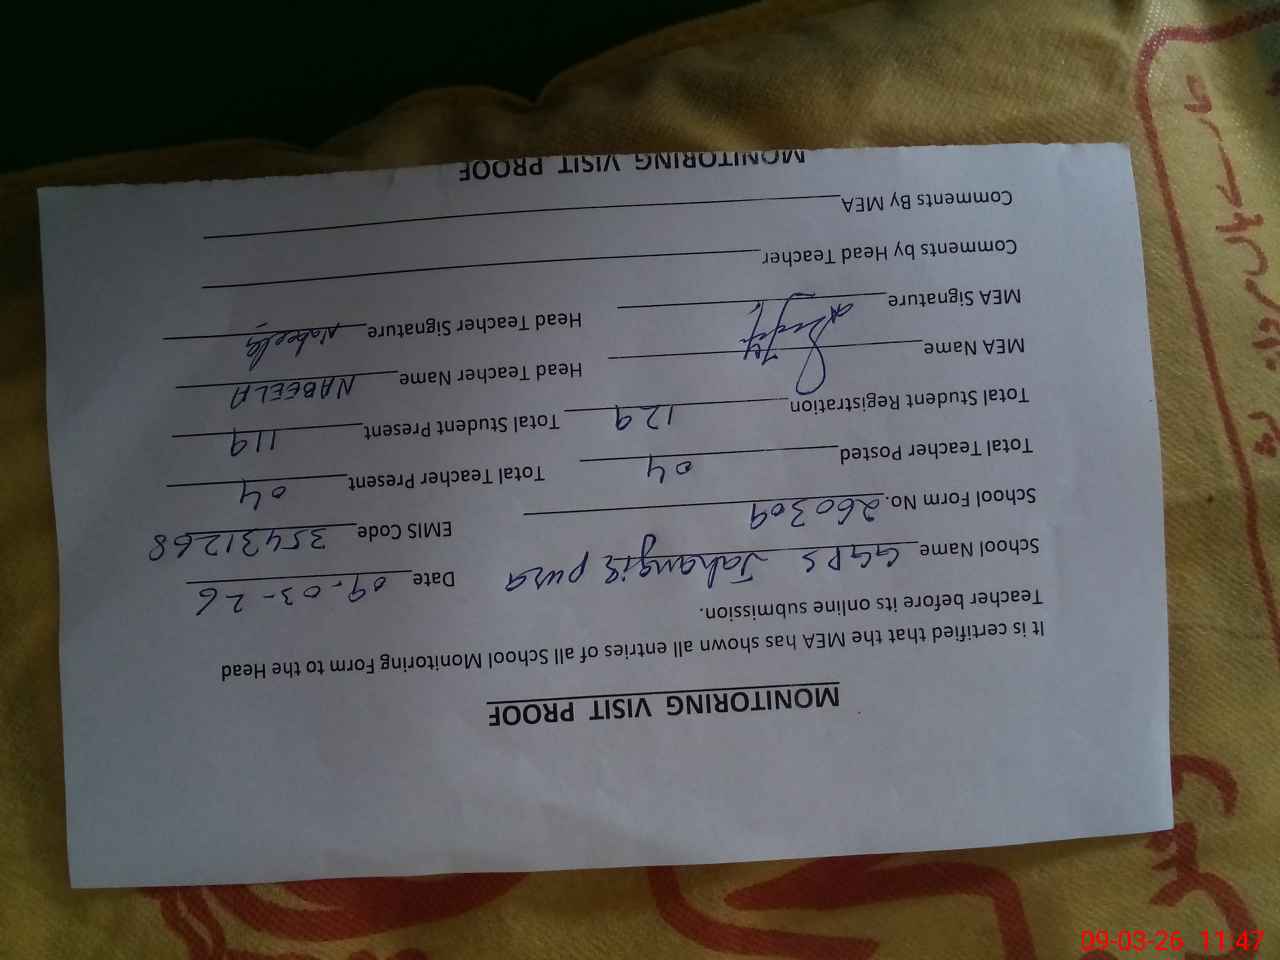 MONITORING VISIT PROOF
It is certified that the MEA has shown all entries of all School Monitoring Form to the Head
Teacher before its online submission.
School Name GGPS Jahangir pura Date 09-03-26
School Form No. 260309 EMIS Code 35431268
Total Teacher Posted 04 Total Teacher Present 04
Total Student Registration 129 Total Student Present 119
MEA Name Head Teacher Name NABEELA
MEA Signature Head Teacher Signature Nabeela
Comments by Head Teacher
Comments By MEA
MONITORING VISIT PROOF
09-03-26 11:47